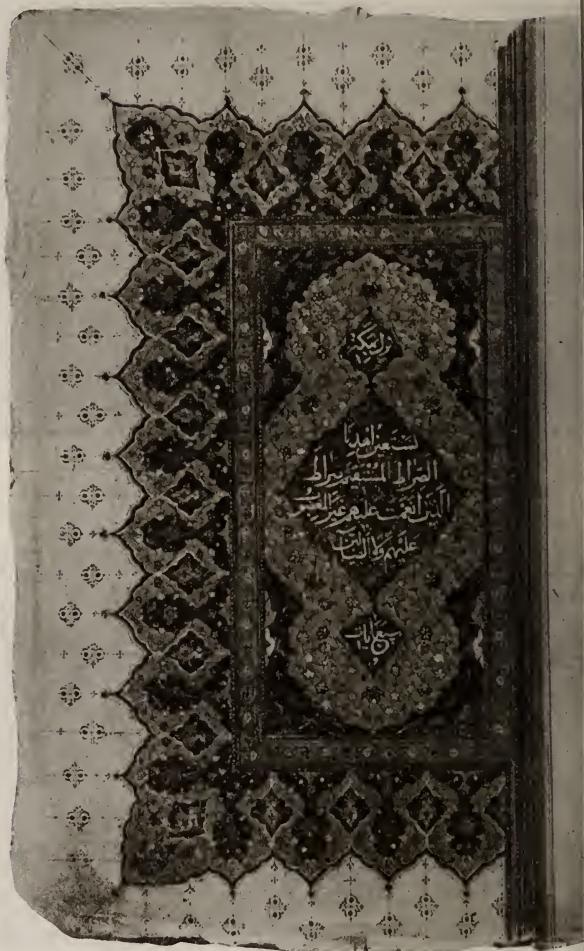 نزل بمكة
نستعين اهدنا
الصراط المستقيم صراط
الذين انعمت عليهم غير المغضوب
عليهم ولا الضالين
سبع آيات